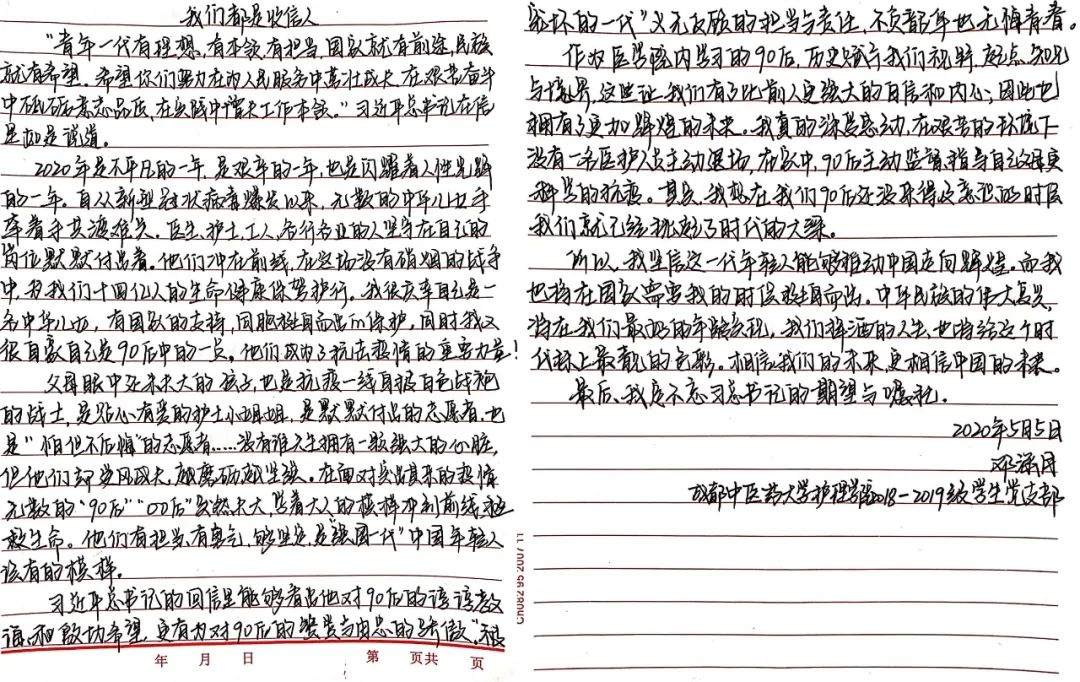 我们都是收信人
"青年一代有理想,有本领,有担当,国家就有前途,民族
就有希望。希望你们努力在为人民服务中茁壮成长,在艰苦奋斗
中砥砺意志品质,在实践中增长工作本领。"习近平总书记在信
里如是说道。
2020年是不平凡的一年,是艰辛的一年,也是闪耀着人性光辉
的一年。自从新型冠状病毒爆发以来,无数的中华儿女手
牵着手共渡难关。医生、护士、工人、各行各业的人坚守在自己的
岗位默默付出着。他们冲在前线,在这场没有硝烟的战争
中,为我们十四亿人的生命健康保驾护行。我很庆幸自己是一
名中华儿女,有国家的支持,同胞挺身而出的保护,同时我又
很自豪自己是90后中的一员。他们成为了抗击疫情的重要力量!
父母眼中还未长大的孩子,也是抗疫一线身披白色战袍
的战士,是贴心有爱的护士小姐姐,是默默付出的志愿者,也
是"怕但不后悔"的志愿者……没有谁天生拥有一颗强大的心脏,
但他们却迎风成长,越磨砺越坚强。在面对突如其来的疫情
无数的"90后""00后"突然长大,学着大人的模样冲到前线拯
救生命。他们有担当,有勇气,够坚定,是"强国一代"中国年轻人
该有的模样。
习近平总书记的回信里能够看出他对90后的谆谆教
诲和殷切希望,更有为对90后的赞赏与由衷的骄傲。"被
宠坏的一代"义无反顾的担当与责任,不负韶华也无悔青春。
作为医学院内学习的90后,历史赋予我们视野、起点、知识
与境界,这些让我们有了比前人更强大的自信和内心;因此也
拥有了更加辉煌的未来。我真的深受感动,在艰苦的环境下
没有一名医护人员主动退场,在家中,90后主动监督指导自己父母更
科学的抗疫。其实,我想在我们90后还没来得及意识的时候
我们就已经挑起了时代的大梁。
所以,我坚信这一代年轻人能够推动中国走向辉煌。而我
也将在国家需要我的时候挺身而出。中华民族的伟大复兴
将在我们最好的年龄实现,我们挥洒的人生,也将给这个时
代抹上最靓的色彩。相信我们的未来,更相信中国的未来。
最后,我定不忘习总书记的期望与嘱托。
2020年5月5日
成都中医药大学护理学院2018-2019级学生党支部
年 月 日 第 页共 页